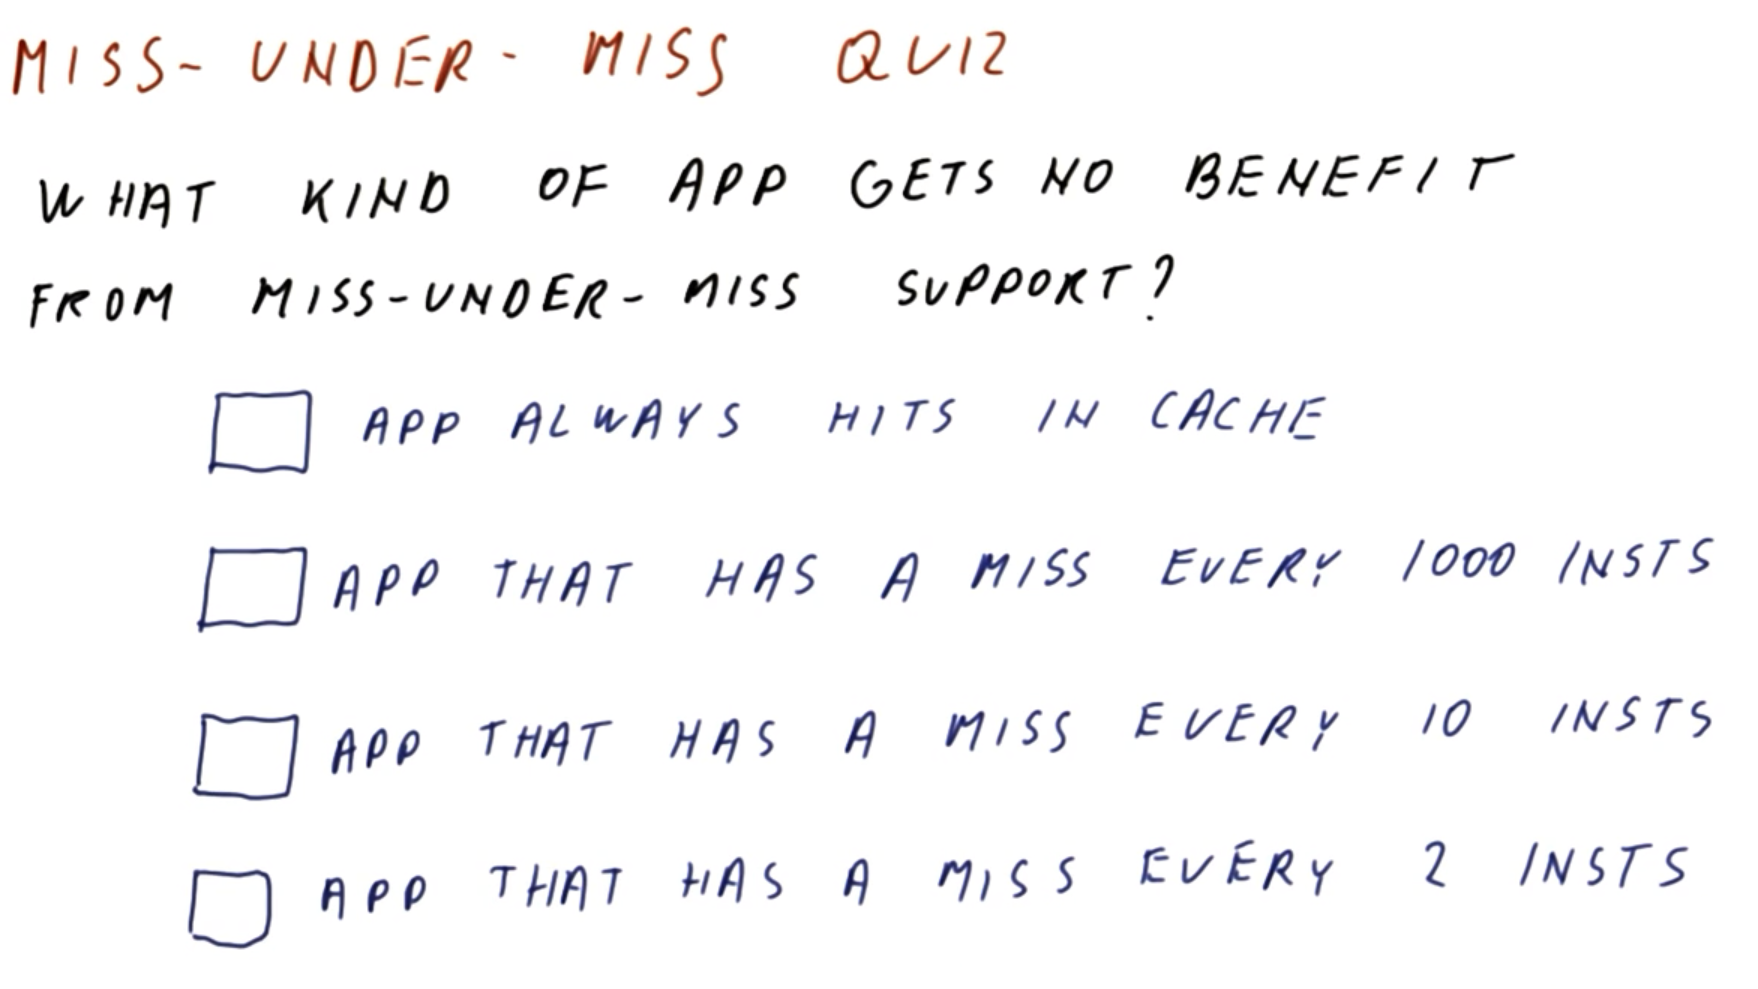 MISS-UNDER-MISS QUIZ
WHAT KIND OF APP GETS NO BENEFIT
FROM MISS-UNDER-MISS SUPPORT?
APP ALWAYS HITS IN CACHE
APP THAT HAS A MISS EVERY 1000 INSTS
APP THAT HAS A MISS EVERY 10 INSTS
APP THAT HAS A MISS EVERY 2 INSTS